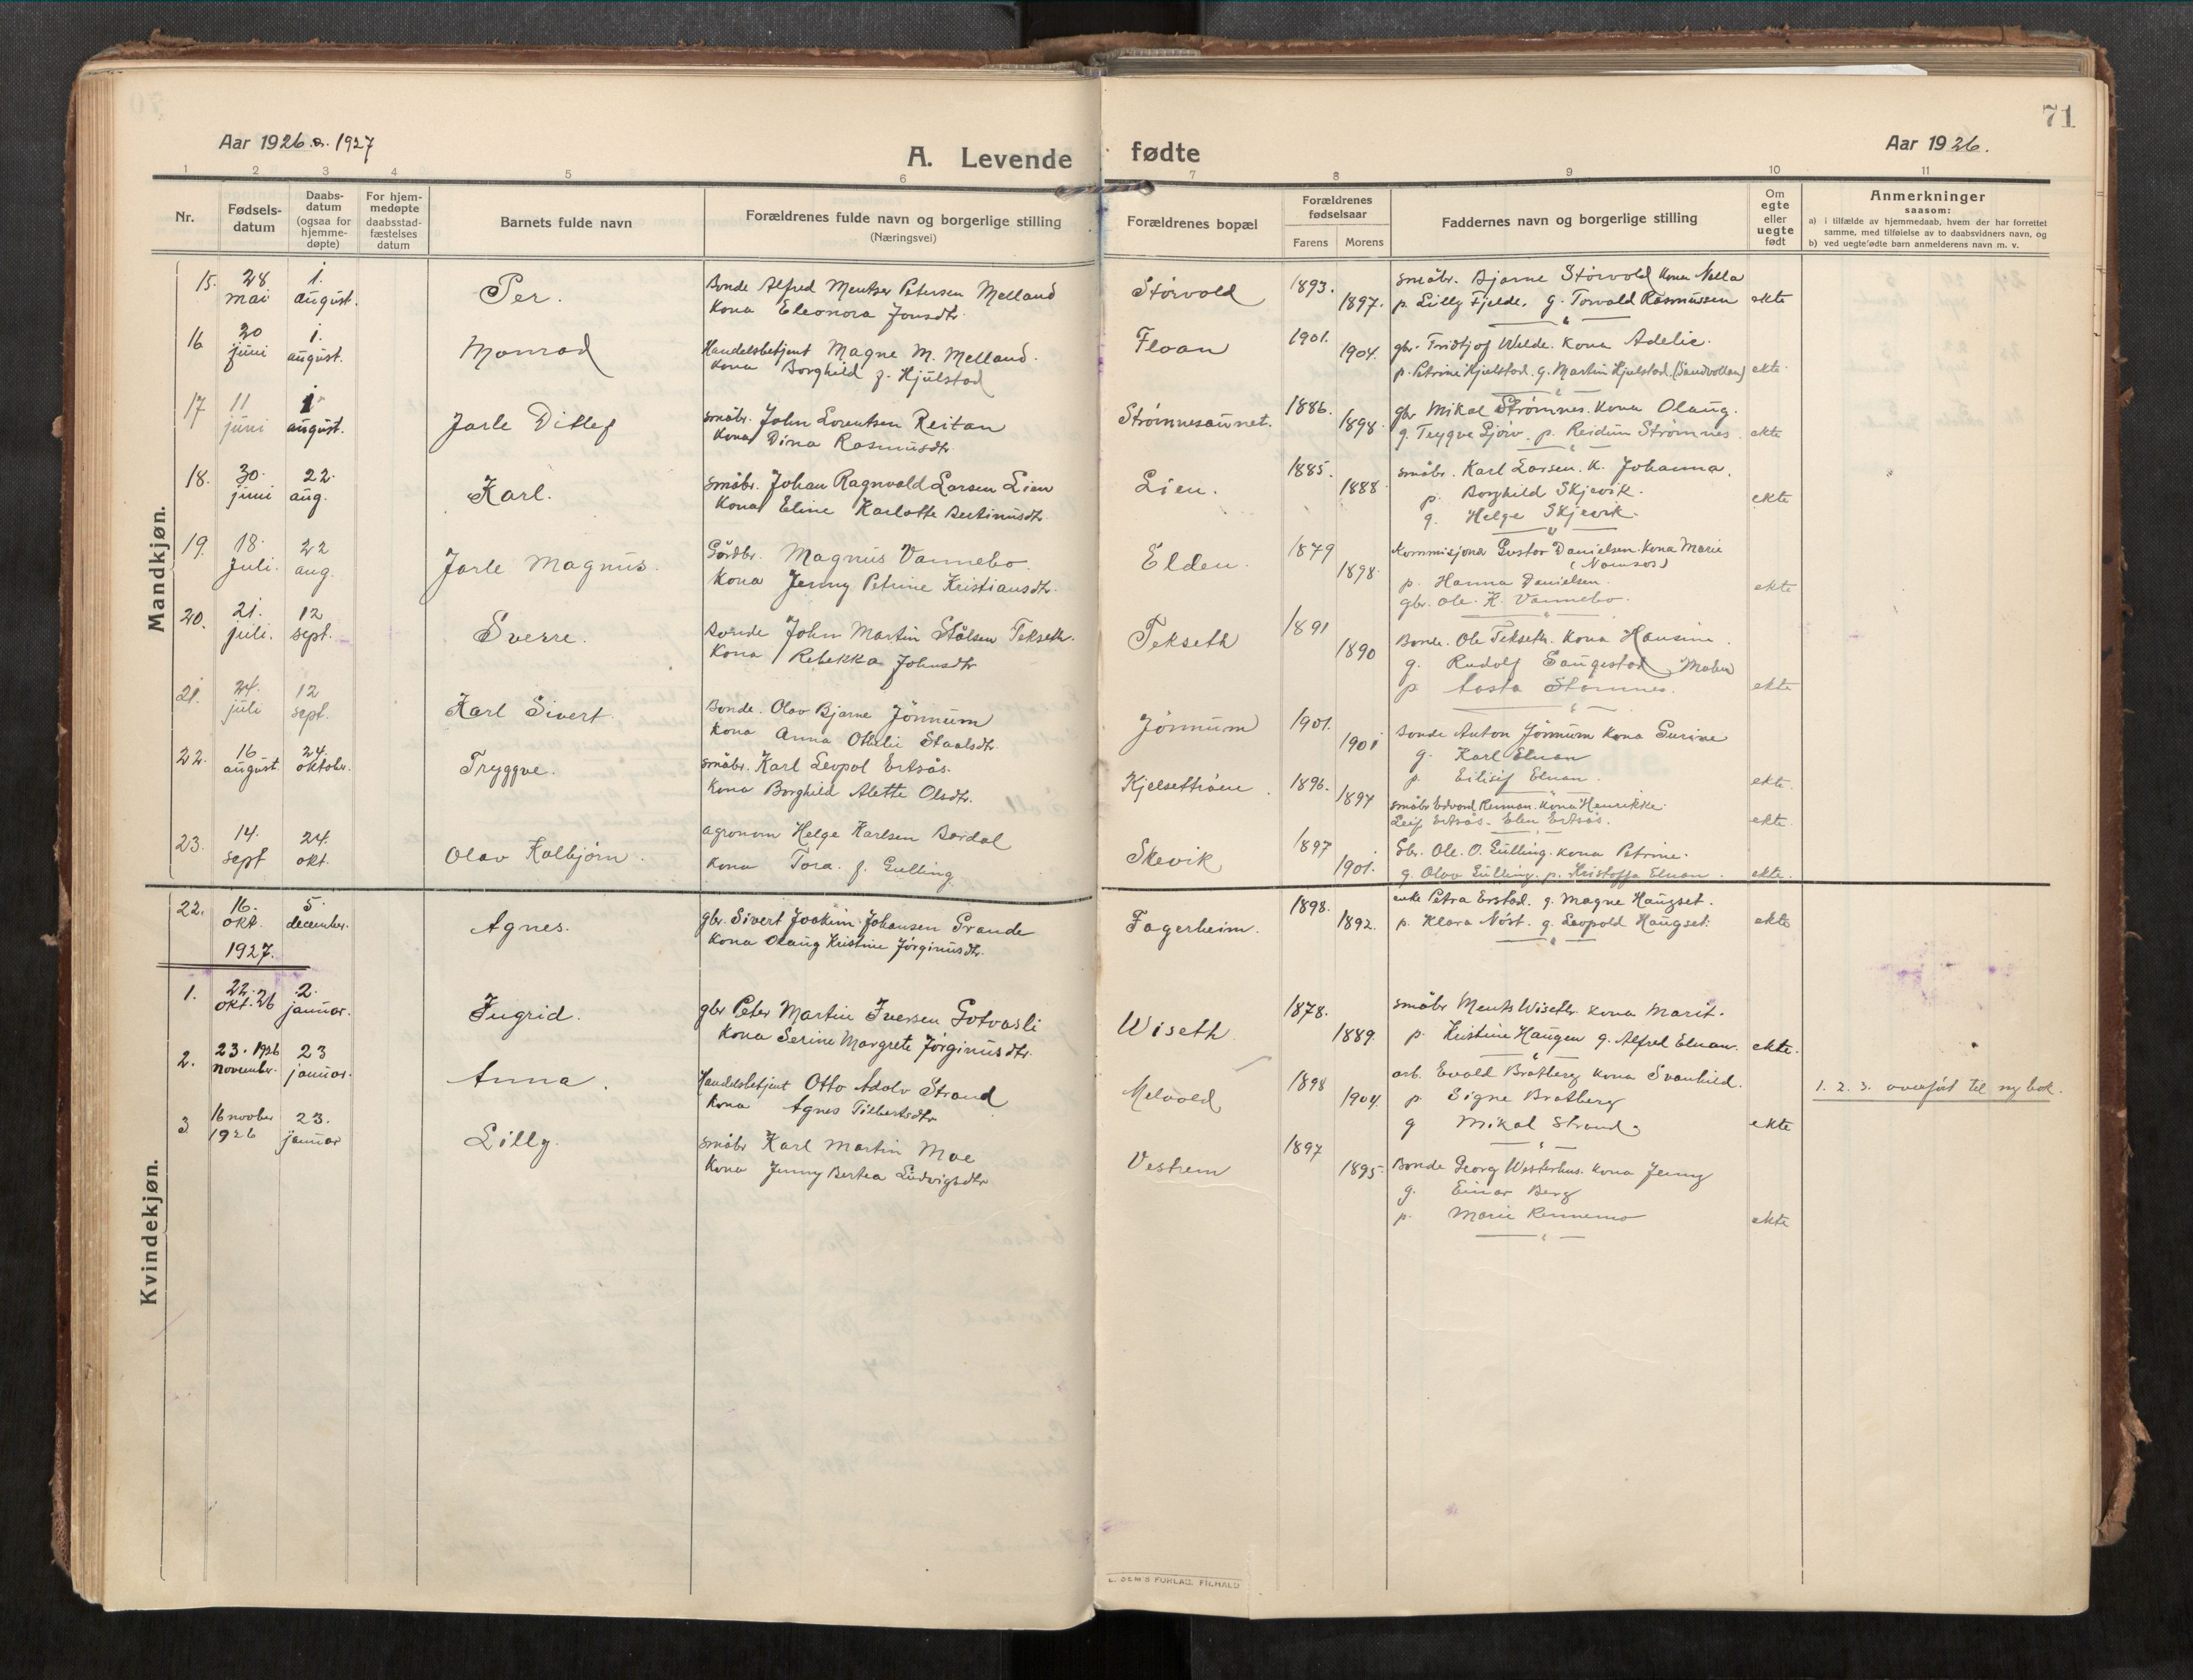 71
Aar 1926 o. 1927
A. Levende fødte
Aar 1926.
1 2 3 4 5 6 7 8 9 10 11
Nr.
Fødsels-
datum
Daabs-
datum
(ogsaa for
hjemme-
døpte)
For hjem-
medøpte
daabsstad-
fæstelses
datum
Barnets fulde navn
Forældrenes fulde navn og borgerlige stilling
(Næringsvei)
Forældrenes bopæl
Forældrenes
fødselsaar
Farens Morens
Faddernes navn og borgerlige stilling
Om
egte
eller
uegte
født
Anmerkninger
saasom:
a) i tilfælde av hjemmedaab, hvem der har forrettet
samme, med tilføielse av to daabsvidners navn, og
b) ved uegte fødte barn anmelderens navn m. v.
Mandkjøn.
15. 28 mai 1. august. Per.
Bonde Alfred Mentser Petersen Melland
Kona Eleonora Jonsdtr.
Størvold 1893. 1897.
småbr. Bjarne Størvold kona Nella
p. Lilly Fjelde. g. Torvald Rasmussen ekte
16 20 juni 1. august. Monrad
Handelsbetjent Magne M. Melland.
Kona Borghild f. Hjulstad
Floan 1901. 1904.
gbr. Fridtjof Welde. kona Adelie.
p. Petrine Hjulstad. g. Martin Hjulstad (Sandvollan) ekte.
17 11 juni 1 august. Jarle Ditlef
småbr. John Lorentsen Reitan
Kona Dina Rasmusdtr.
Strømnesaunet. 1886. 1898.
gbr Mikal Strømnes. kona Olaug.
g. Trygve Gjørv. p. Reidun Strømnes. ekte
18. 30. juni 22. aug. Karl.
småbr. Johan Ragnvald Larsen Lien
Kona Eline Karlotte Bertinusdtr.
Lien. 1885. 1888
småbr. Karl Larsen. k. Johanna.
p. Borghild Skjevik.
g. Helge Skjevik. ekte
19. 18. Juli. 22 aug. Jarle Magnus.
Gårdbr. Magnus Vannebo.
Kona Jenny Petrine Kristiansdtr.
Elden. 1879 1898.
Kommisjonær Gustav Danielsen. kona Marie
(Namsos)
p. Hanna Danielsen.
gbr. Ole K. Vannebo. ekte
20. 21. juli. 12 sept. Sverre.
Bonde John Martin Stålsen Tekseth.
Kona Rebekka Johnsdtr
Tekseth 1891 1890
Bonde. Ole Tekseth. kona Hansine.
g. Rudolf Saugestad
p. Aasta Stamnes. ekte
21. 24. juli 12 sept. Karl Sivert.
Bonde. Olav Bjarne Jönnum
Kona Anna Othelie Staalsdtr.
Jönnum 1901. 1901
Bonde Anton Jönnum kona Gurine
g. Karl Elnan
p. Eilisif Elnan. ekte.
22. 16 august 24. oktober. Tryggve.
småbr. Karl Leopol Ertsås.
Kona Borghild Alette Olsdtr.
Kjelsettrøen. 1896. 1897
småbr Edvard Renman. kona Henrikke.
Leif Ertsås. Elen Ertsås. ekte.
23. 14. sept 24. okt. Olav Kolbjörn.
agronom Helge Karlsen Bardal
Kona Tora. f. Gulling
Skevik 1897 1901.
Gbr. Ole. O. Gulling. kona Petrine.
g Olav Gulling. p. Kristoffa Elnan. ekte.
Kvindekjøn.
22. 16. okt. 5. december. Agnes.
gbr. Sivert Joakim Johansen Grande
Kona Olaug Kristine Jørginusdtr.
Fagerheim. 1898. 1892.
enke Petra Erstad. g. Magne Haugset.
p. Klara Nöst. g. Leopold Haugset. ekte
1927.
1. 22. okt. 26 2. januar. Ingrid.
gbr Peter Martin Iversen Gotvasli
Kona Serine Margrete Jørginusdtr.
Wiseth 1878. 1889.
småbr Ments Wiseth. kona Marit.
p. Kristine Haugen g. Alfred Elnan. ekte.
2. 23. 1926 november. 23 januar. Anna.
Handelsbetjent Otto Adolv Strand
Kona Agnes Tilbertsdtr.
Melvold 1898 1904.
arb. Evald Bratberg kona Svanhild.
p. Signe Bratberg
g Mikal Strand. ekte
1. 2. 3. overført til ny bok.
3 16 novber 1926 23. januar Lilly.
småbr Karl Martin Moe
Kona Jenny Bertea Ludvigsdtr
Vestrem 1897 1895.
Bonde Georg Westerhus. kona Jenny
g. Einar Berg
p. Marie Rennemo ekte